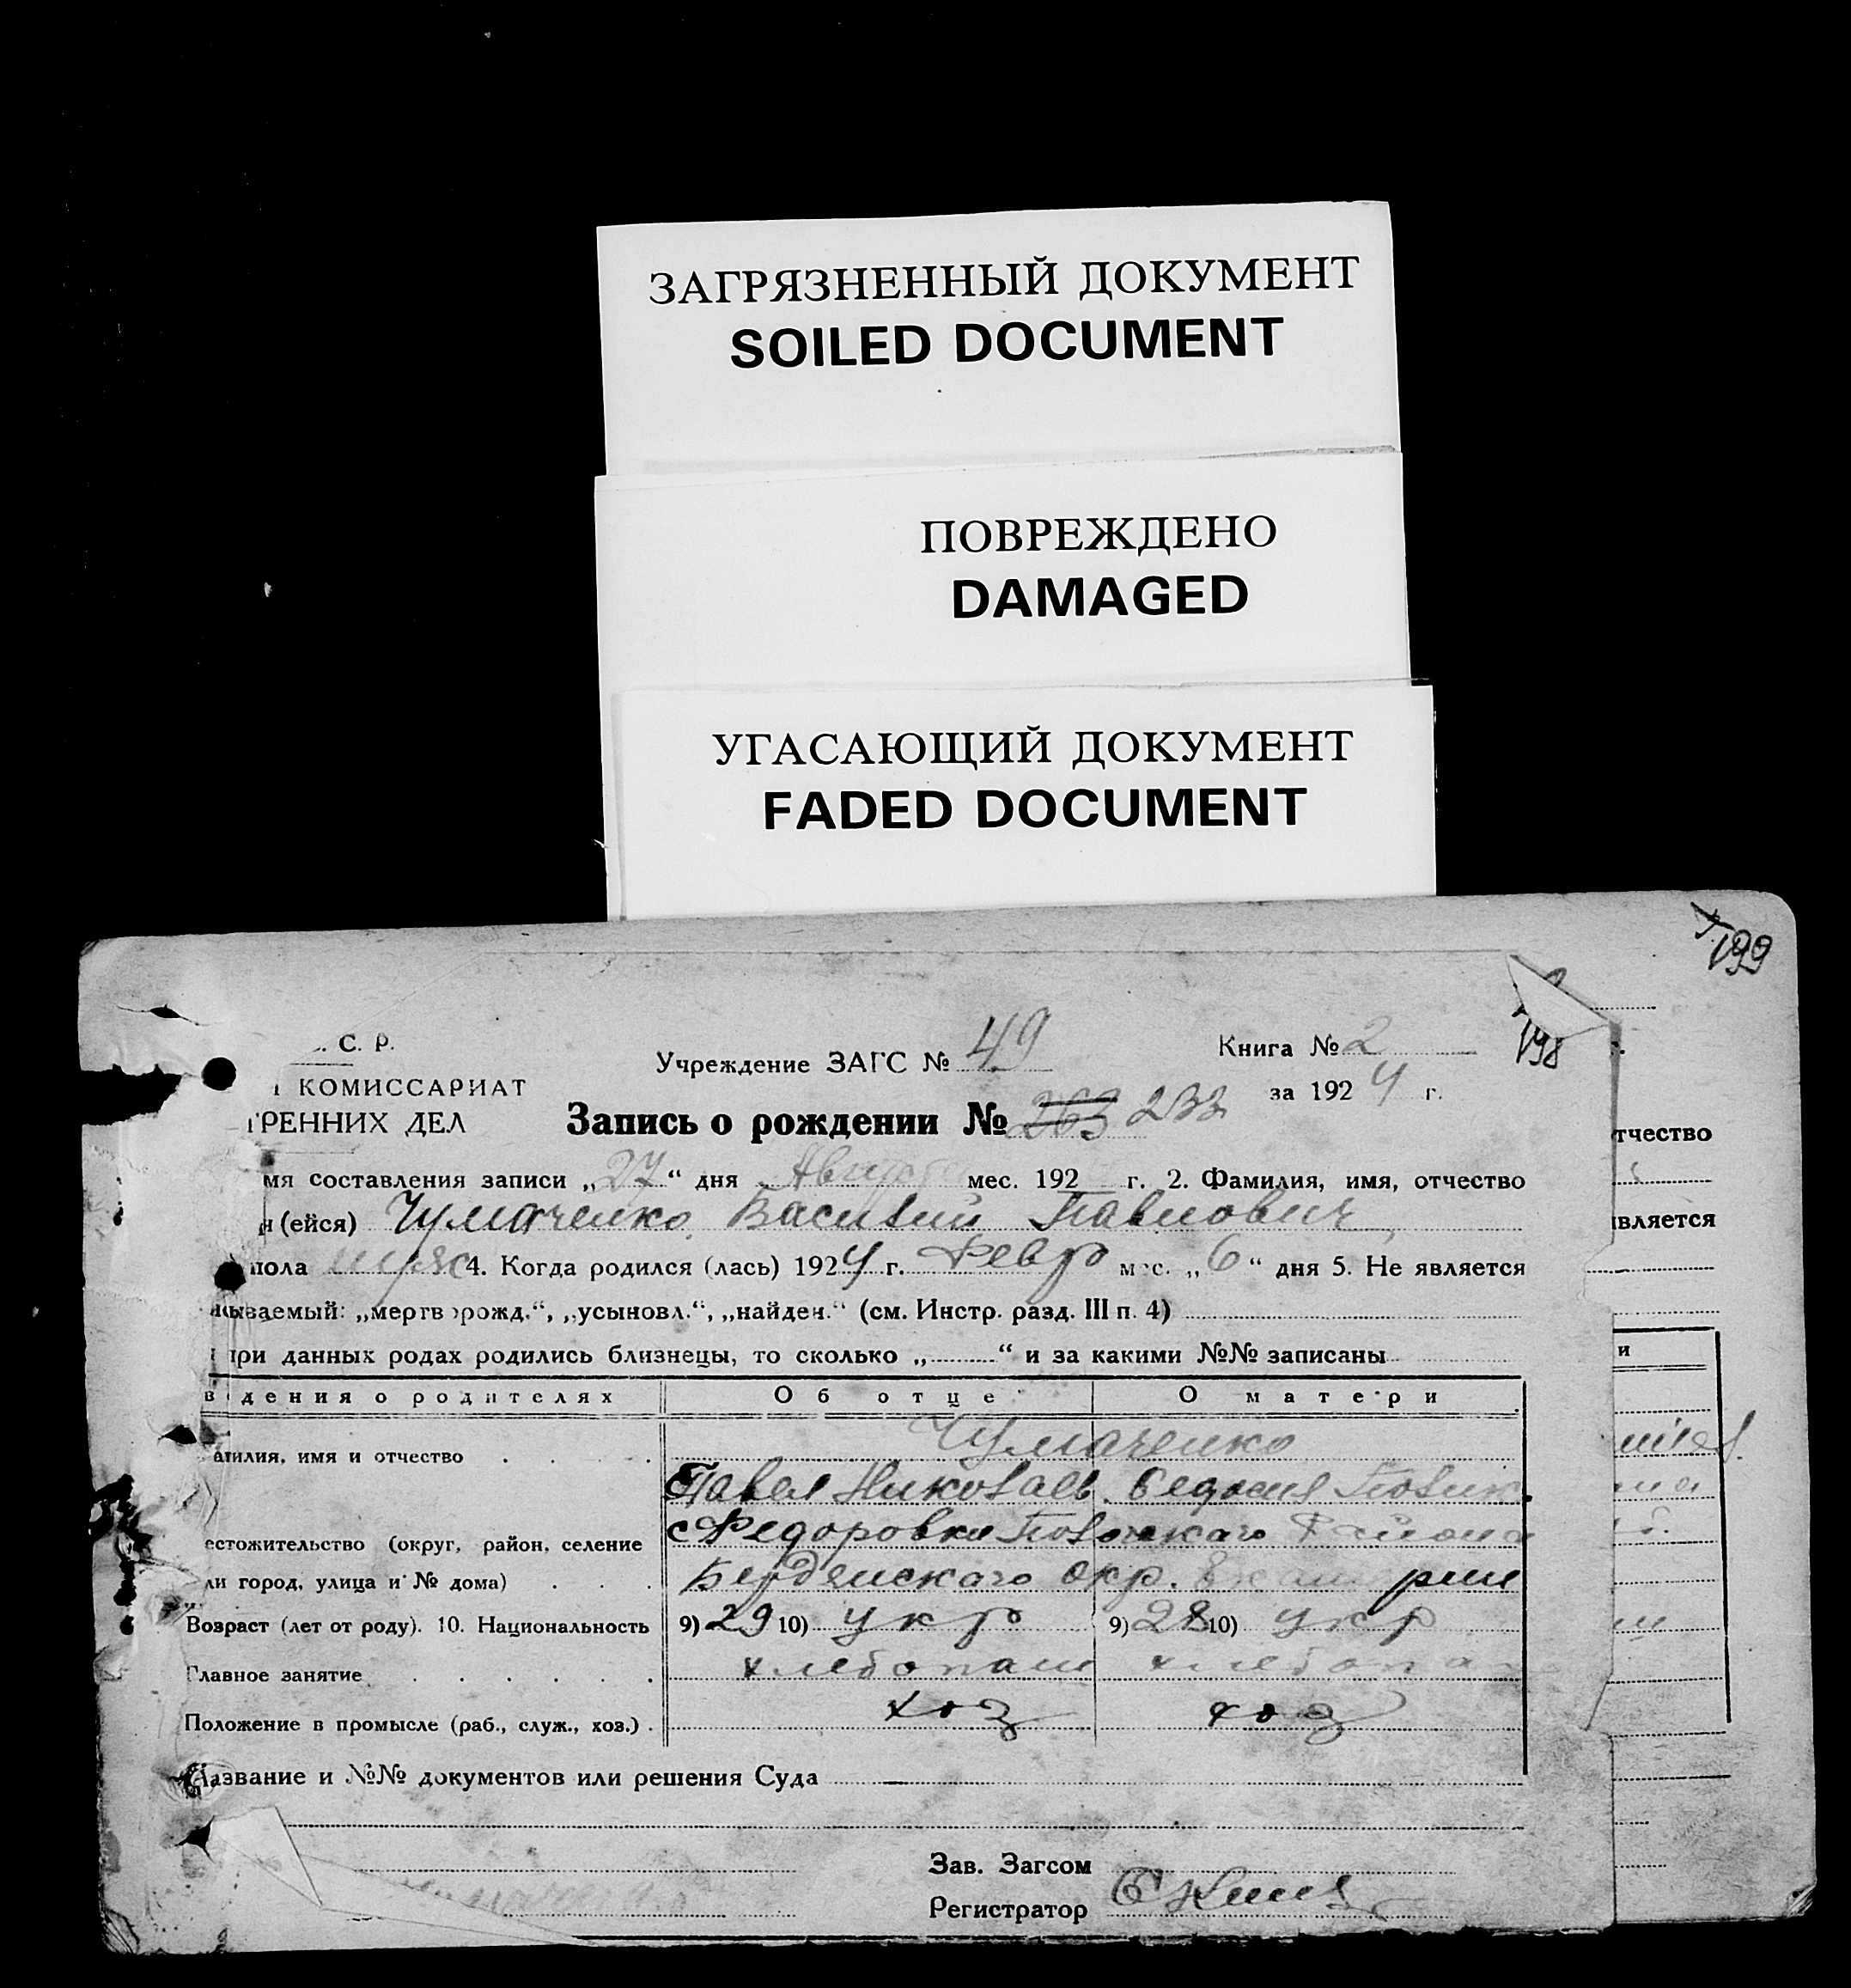 ЗАГРЯЗНЕННЫЙ ДОКУМЕНТ
SOILED DOCUMENT
ПОВРЕЖДЕНО
DAMAGED
УГАСАЮЩИЙ ДОКУМЕНТ
FADED DOCUMENT
199
198
С. Р.
КОМИССАРИАТ
ТРЕННИХ ДЕЛ
Учреждение ЗАГС № 49
Книга № 2
за 1924 г.
Запись о рождении № 263 233
мя составления записи „27“ дня Август мес. 192 г. 2. Фамилия, имя, отчество
я (ейся) Чумаченко Василий Павлович
пола муж 4. Когда родился (лась) 1924 г. Февр мес. „6“ дня 5. Не является
ываемый: „мертворожд.“, „усыновл.“, „найден.“ (см. Инстр. разд. III п. 4)
при данных родах родились близнецы, то сколько „ “ и за какими №№ записаны
ведения о родителях Об отце О матери
амилия, имя и отчество Чумаченко
Павел Николаев. Федосия
естожительство (округ, район, селение с Федоровка района
ли город, улица и № дома) Бердянскаго окр.
Возраст (лет от роду). 10. Национальность 9) 29 10) укр 9) 28 10) укр
Главное занятие хлебопаш хлебопа
Положение в промысле (раб., служ., хоз.) хоз хоз
Название и №№ документов или решения Суда
Зав. Загсом
Регистратор
тчество
является
и